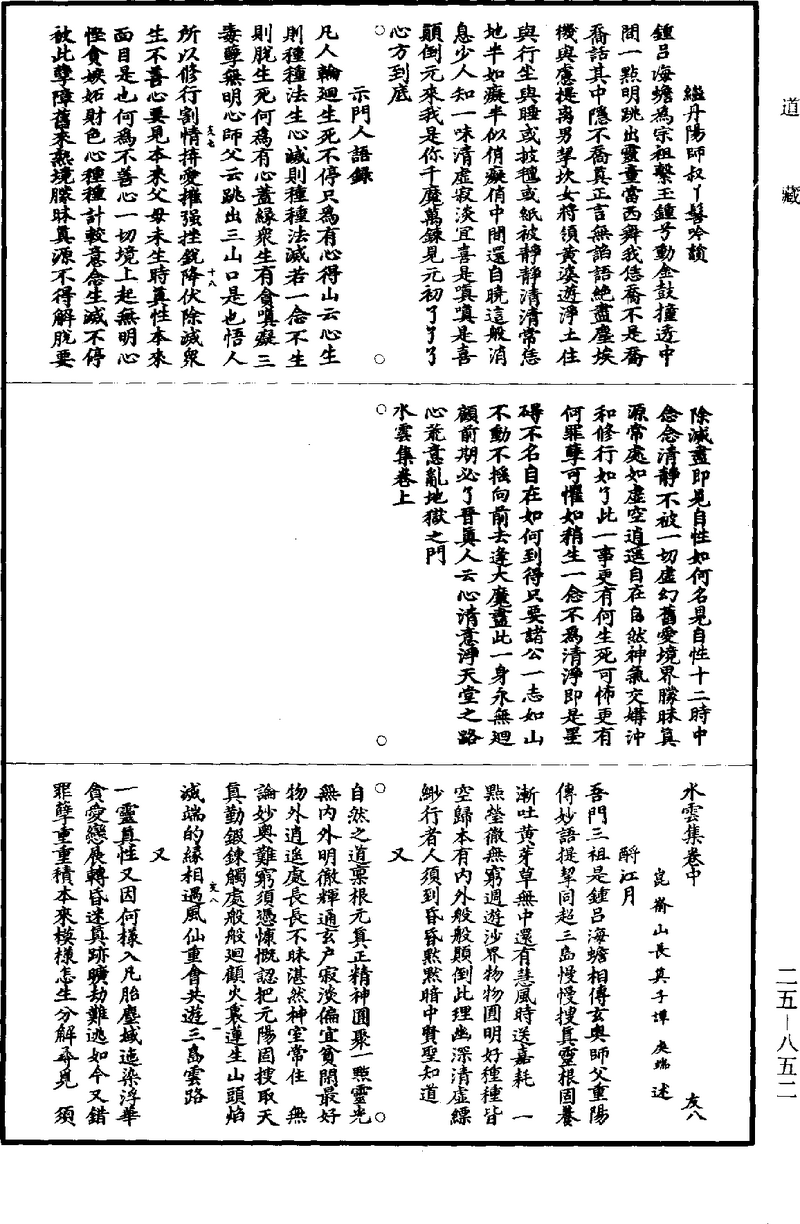 道藏
繼丹陽師叔丫髻吟韻
鍾呂海蟾為宗祖繫玉鍾兮動金鼓撞透中
間一點明跳出靈童當西舞我恁喬不是喬
喬話其中隱不喬真正言無謟語絕盡塵埃
機與慮提离男挈坎女將領黃婆遊淨土住
與行坐與睡或披氊或紙被靜靜清清常恁
地半如癡半似俏癡俏中間還自曉這般消
息少人知一味清虛寂淡宜喜是嗔嗔是喜
顛倒元來我是你千魔萬鍊見元初了了了
心方到底
示門人語錄
凡人輪迴生死不停只為有心得山云心生
則種種法生心滅則種種法滅若一念不生
則脫生死何為有心蓋緣衆生有貪嗔癡三
毒孽無明心師父云跳出三山口是也悟人
所以修行割情捨愛摧强挫銳降伏除滅衆
生不善心要見本來父母未生時真性本來
面目是也何為不善心一切境上起無明心
慳貪嫉妬財色心種種計較意念生滅不停
被此孽障舊來熟境朦昧真源不得解脫要
友七
十八
除滅盡即見自性如何名見自性十二時中
念念清靜不被一切虛幻舊愛境界朦昧真
源常處如虛空逍遥自在自然神氣交媾沖
和修行如了此一事更有何生死可怖更有
何罪孽可懼如稍生一念不為清淨即是罣
碍不名自在如何到得只要諸公一志如山
不動不揺向前去逢大魔盡此一身永無迴
顧前期必了晉真人云心清意淨天堂之路
心荒意亂地獄之門
水雲集卷上
水雲集卷中
友八
崑崳山長真子譚處端述
酹江月
吾門三祖是鍾呂海蟾相傳玄奧師父重陽
傳妙語提挈同超三島慢慢搜真靈根固養
漸吐黃芽草無中還有慧風時送嘉耗　一
點瑩徹無窮週遊沙界物物圓明好種種皆
空歸本有內外般般顛倒此理幽深清虛縹
緲行者人須到昏昏黙黙暗中賢聖知道
又
自然之道禀根元真正精神圓聚一點靈光
無內外明徹輝通玄戶寂淡偏宜貧閑最好
物外逍遥處長長不昧湛然神室常住　無
論妙奧難窮須憑慷慨認把元陽固搜取天
真勤鍜鍊觸處般般迴顧火裏蓮生山頭焰
滅端的緣相遇風仙重會共遊三島雲路
友八
一
又
一靈真性又因何樣入凡胎塵域迤染浮華
貪愛戀展轉昏迷真跡曠劫難逃如今又錯
罪孽重重積本來模樣怎生分解尋覓　須
二五—八五二